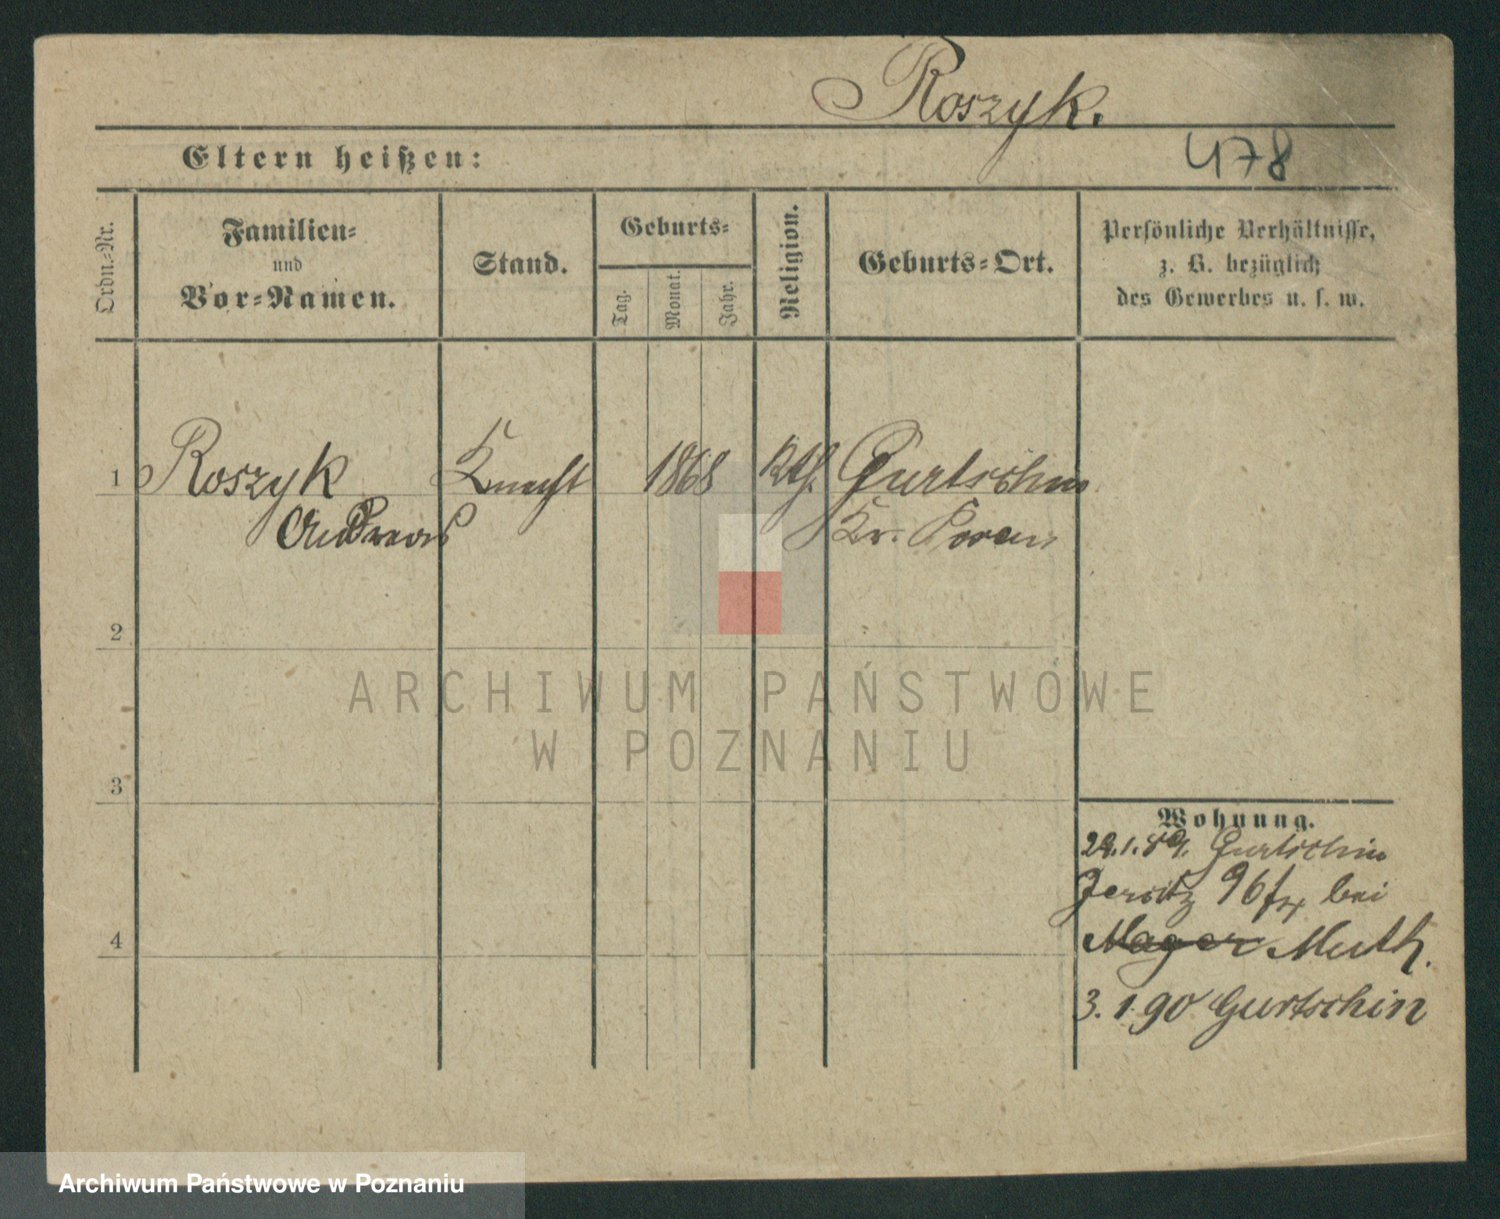 Roszyk.
478
Eltern heißen:
Ordn.-Nr.
Familien-
und
Vor-Namen.
Stand.
Geburts-
Tag.
Monat.
Jahr.
Religion.
Geburts-Ort.
Persönliche Verhältnisse,
z. B. bezüglich
des Gewerbes u. s. w.
1 Roszyk Knecht 1868 Kth. Gurtschin
Andreas Kr. Posen
2
3
4
Wohnung.
29.1.89. Gurtschin
Jersitz 96 bei
Mager Muth.
3.1.90 Gurtschin
ARCHIWUM PAŃSTWOWE
W POZNANIU
Archiwum Państwowe w Poznaniu